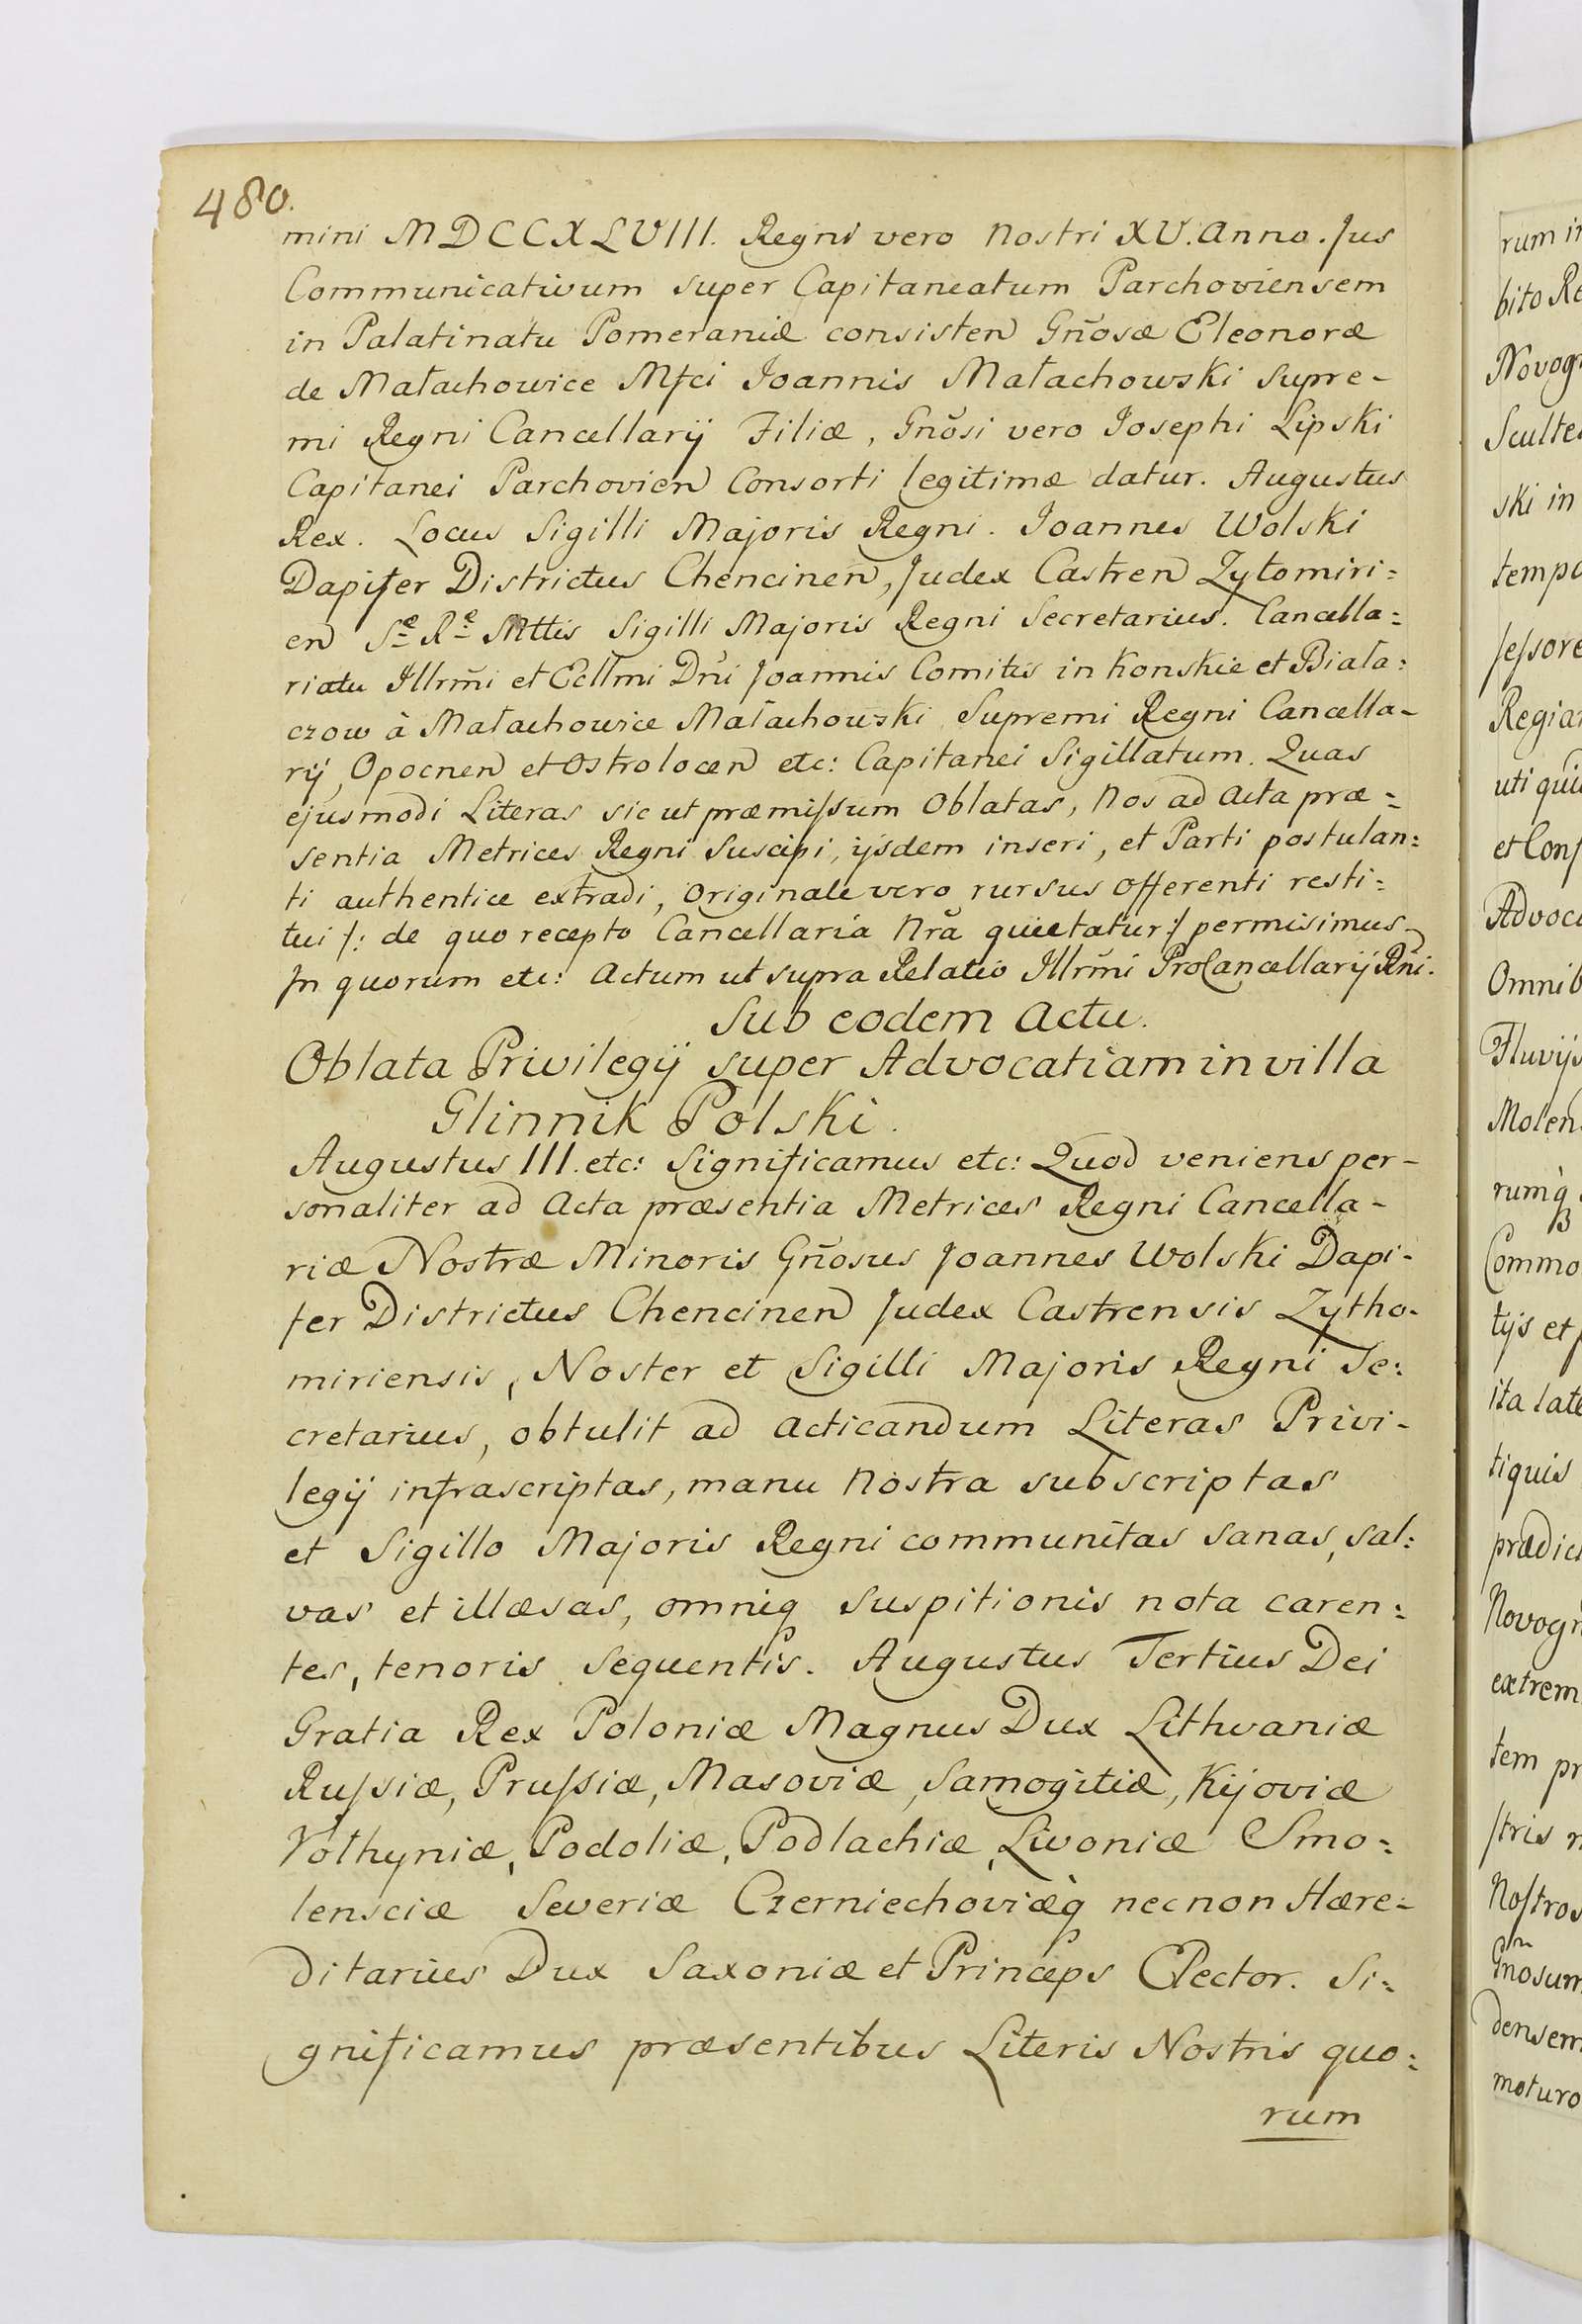 480.
mini MDCCXLVIII. Regni vero Nostri XV. Anno. Jus
Communicativum super Capitaneatum Parchoviensem
in Palatinatu Pomeraniæ consisten Gñosæ Eleonoræ
de Małachowice Mfci Joannis Małachowski Supre-
mi Regni Cancellarij Filiæ, Gñosi vero Josephi Lipski
Capitanei Parchovien Consorti legitimæ datur. Augustus
Rex. Locus Sigilli Majoris Regni. Joannes Wolski
Dapifer Districtus Chencinen, Judex Castren Zytomiri=
en Sᵉ Rᵉ Mttis Sigilli Majoris Regni Secretarius. Cancella=
riatu Illrm̃i et Ecllmi Dñi Joannis Comitis in Konskie et Biała=
czow à Małachowice Małachowski Supremi Regni Cancella-
rij, Opocnen et Ostrolocen etc: Capitanei Sigillatum. Quas
ejusmodi Literas sic ut præmissum Oblatas, Nos ad Acta præ=
sentia Metrices Regni Suscipi, ijsdem inseri, et Parti postulan=
ti authentice extradi, Originale vero rursus Offerenti resti=
tui /: de quo recepto Cancellaria Nrã quietatur :/ permisimus
In quorum etc: Actum ut supra Relatio Illrm̃i ProCancellarij Rñi.
Sub eodem Actu.
Oblata Privilegij super Advocatiam in villa
Glinnik Polski.
Augustus III. etc: Significamus etc: Quod veniens per-
sonaliter ad Acta præsentia Metrices Regni Cancella-
riæ Nostræ Minoris Gñosus Joannes Wolski Dapi-
fer Districtus Chencinen Judex Castrensis Zytho-
miriensis, Noster et Sigilli Majoris Regni Se=
cretarius, obtulit ad acticandum Literas Privi-
legij infrascriptas, manu Nostra subscriptas
et Sigillo Majoris Regni communitas sanas, sal=
vas et illæsas, omniq suspitionis nota caren=
tes, tenoris sequentis. Augustus Tertius Dei
Gratia Rex Poloniæ Magnus Dux Lithvaniæ
Russiæ, Prussiæ, Masoviæ, Samogitiæ, Kijoviæ
Vołhyniæ, Podoliæ, Podlachiæ, Livoniæ Smo=
lensciæ Severiæ Czerniechoviæq́ necnon Hære=
ditarius Dux Saxoniæ et Princeps Elector. Si=
gnificamus præsentibus Literis Nostris quo=
rum
rum in
bito Re
Novogr
Sculte
ski in
tempo
sessore
Regia
uti qui
et Cons
Advoca
Omnib
Fluvijs
Molen
rumq́
Commo
tijs et
ita late
tiquis
prædic
Novogr
extrem
tem pr
stris
Nostros
Gñosum
densem
maturo